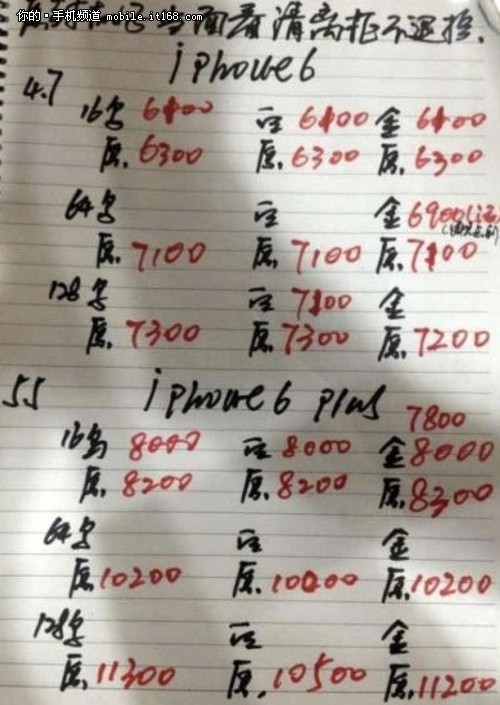 你的·手机频道 mobile.it168.com
当面看清离柜不退换.
iphone6
4.7
16G 6100 白 6100 金 6100
原.6300 原.6300 原.6300
64G 白 金 6900
原.7100 原.7100 原.7100
128G 白 7100 金
原.7300 原.7300 原.7200
5.5 iphone6 plus
7800
16G 8000 白 8000 金 8000
原.8200 原.8200 原.8300
64G 白 金
原.10200 原.10200 原.10200
128G 白 金
原.11300 原.10500 原.11200